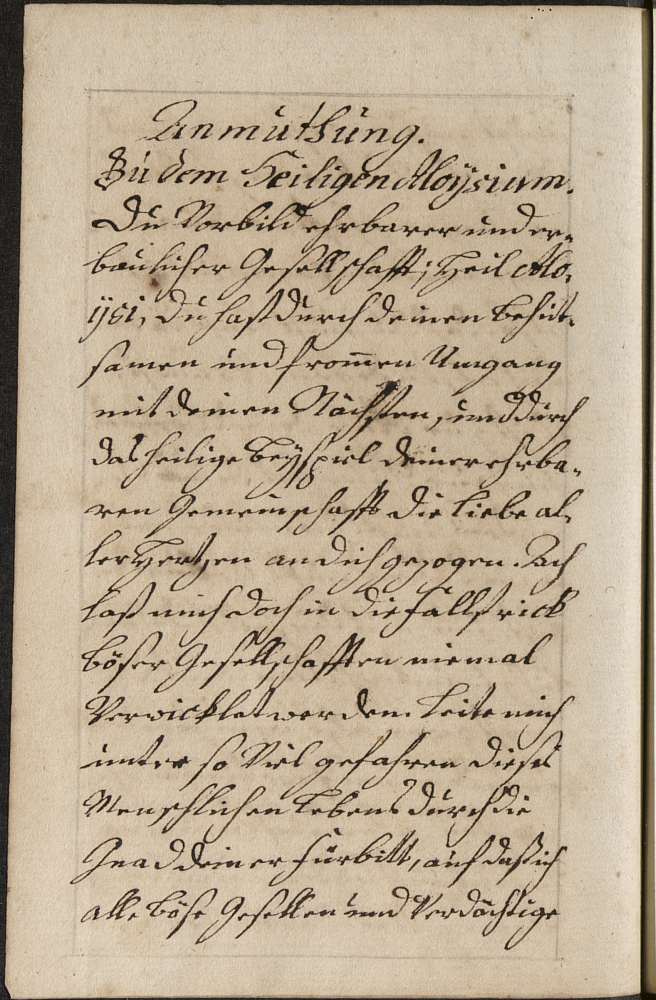 Anmuthung.
Zu dem Heiligen Aloÿsium.
Du Vorbild ehrbarer und er-
baulicher Gesellschafft; Heil. Alo-
ÿsi, du hast durch deinen behut-
samen und from̄en Umgang
mit deinen Nächsten, und durch
das heilige beÿspiel deiner ehrba-
ren Gemeinschafft die liebe al-
ler Hertzen an dich gezogen. Ach
laß mich doch in die fallstrick
böser Gesellschafften niemal
Verwicklet werden. leite mich
unter so Viel gefahren dieses
Menschlichen Lebens durch die
Gnad deiner fürbitt, auf daß ich
alle böse Gesellen und Verdächtige